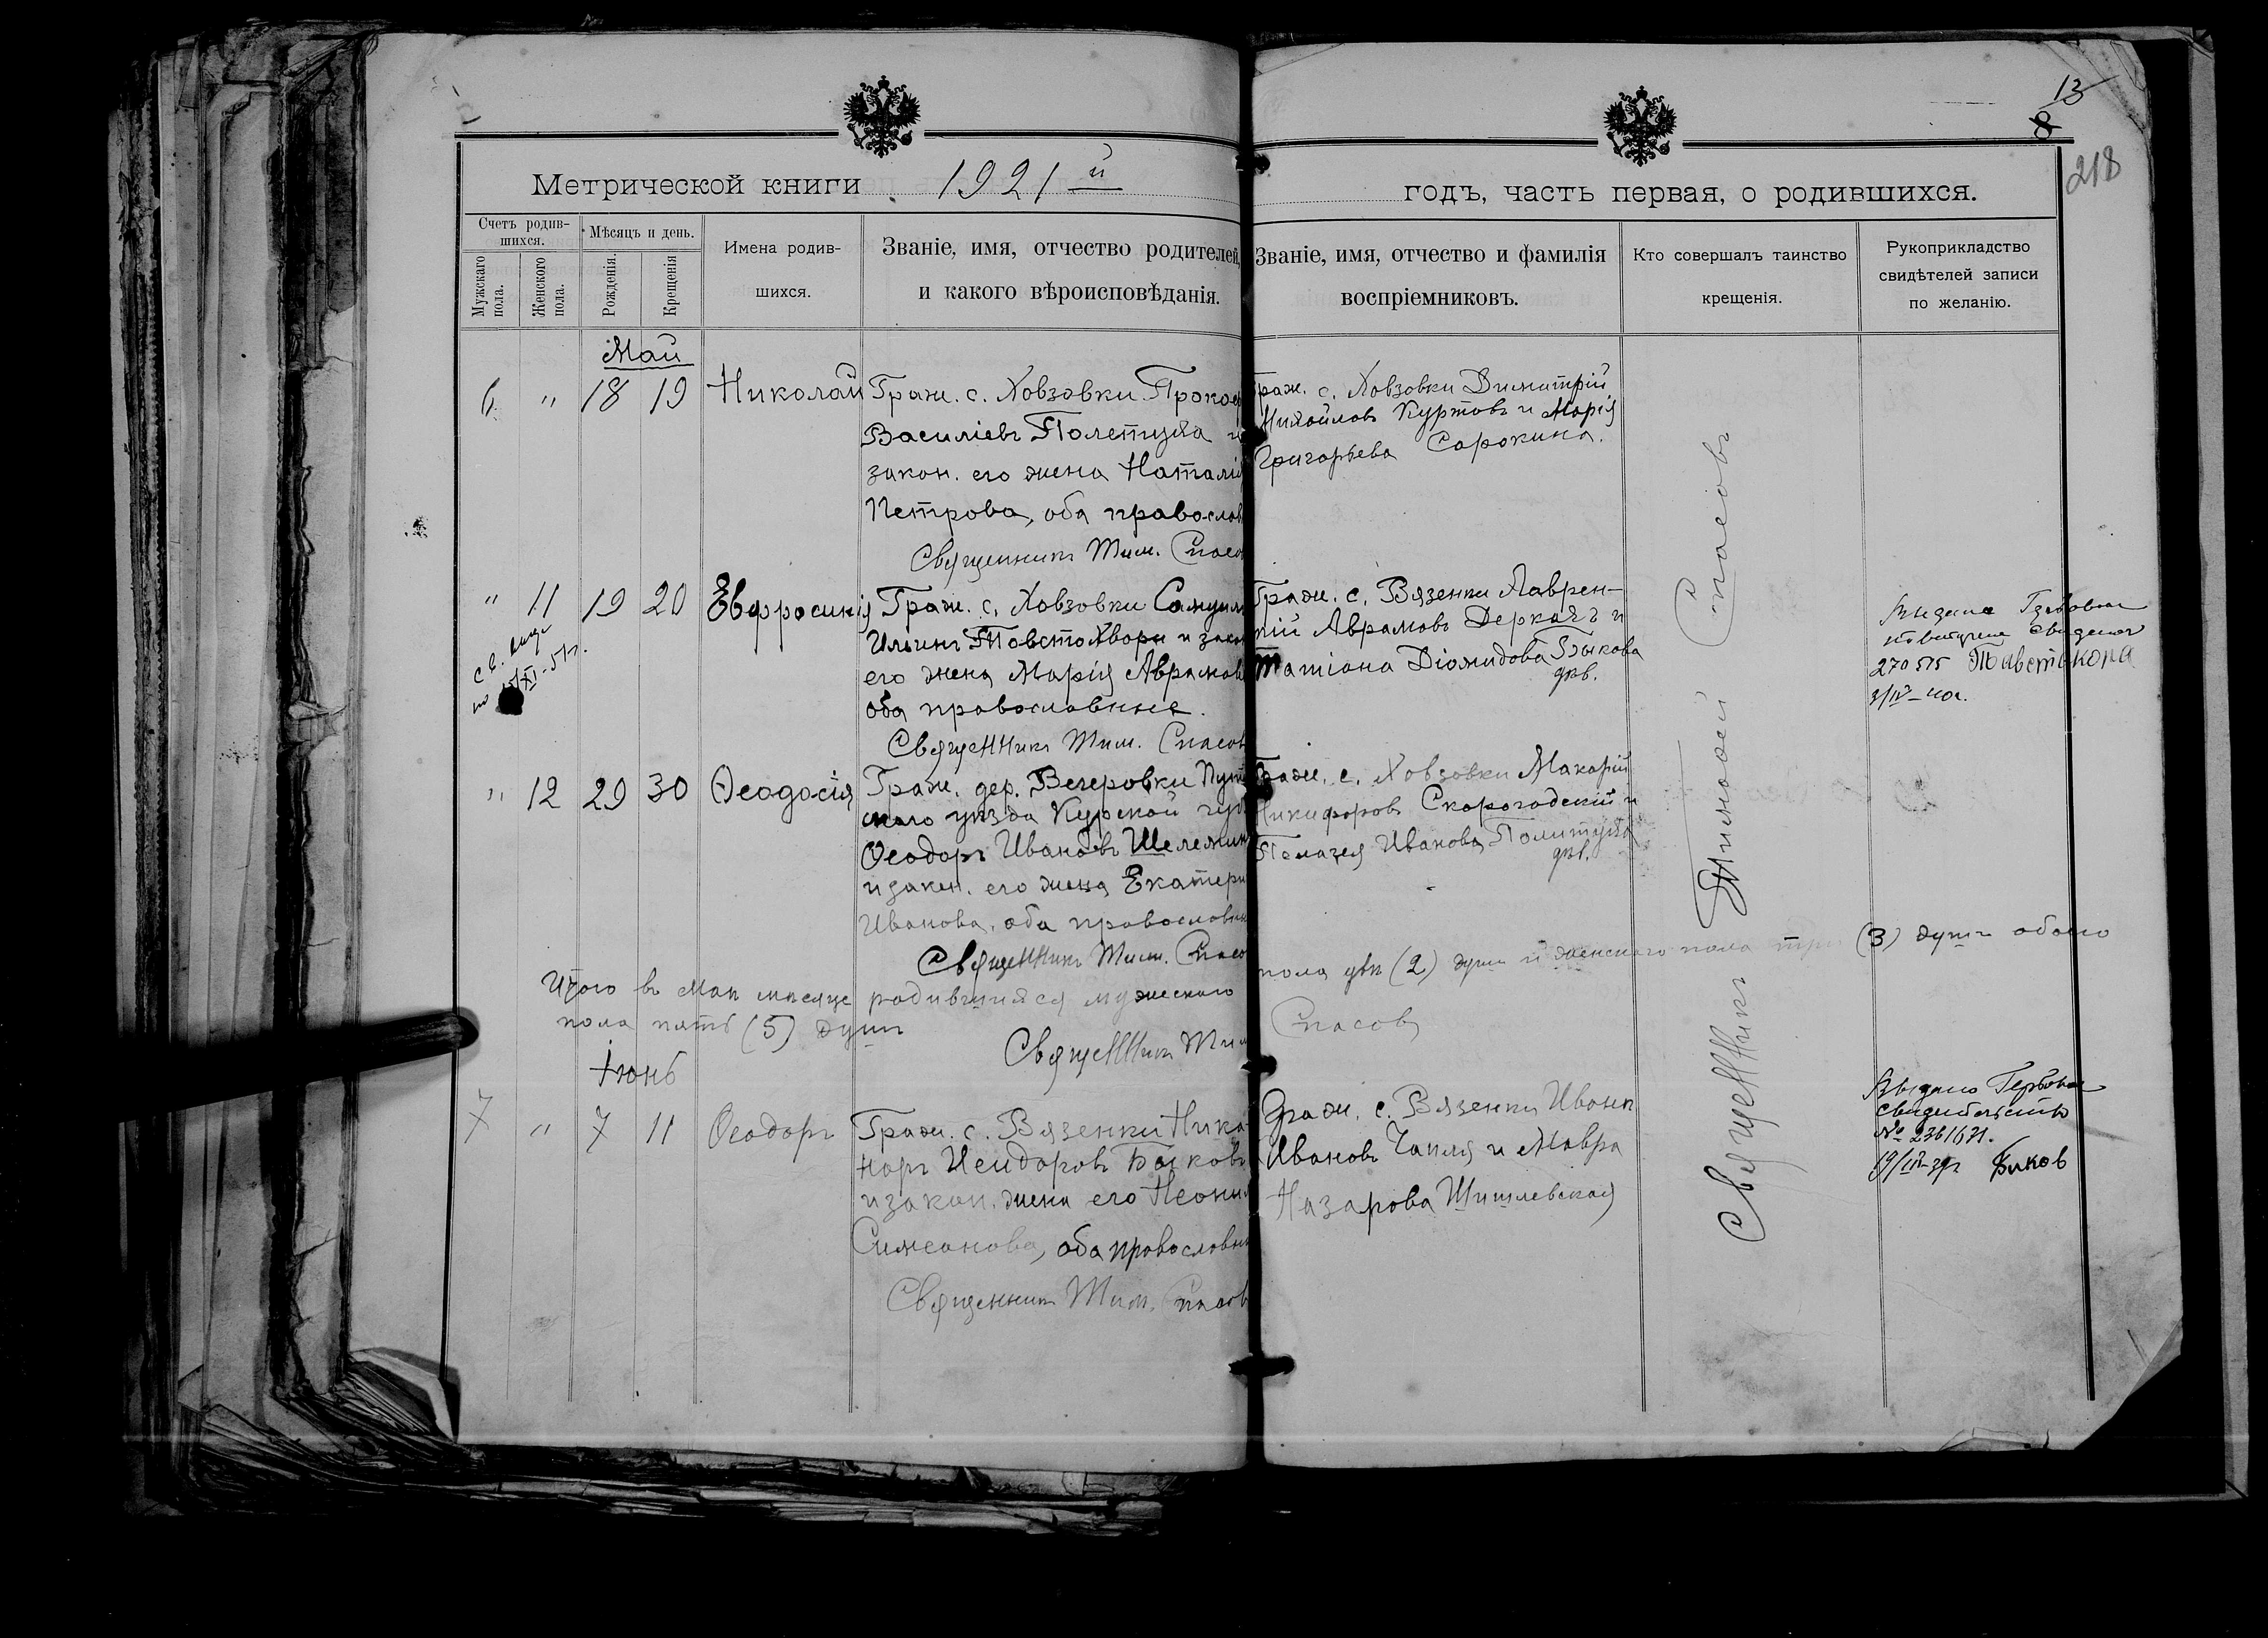 13
8
218
Метрической книги 1921 й годъ, часть первая, о родившихся.
Счетъ родив-
шихся.
Мужскаго
пола.
Женского
пола.
Мѣсяцъ и день.
Рожденія.
Крещенія
Имена родив-
шихся.
Званіе, имя, отчество родителей,
и какого вѣроисповѣданія.
Званіе, имя, отчество и фамилія
воспріемниковъ.
Кто совершалъ таинство
крещенія.
Рукоприкладство
свидѣтелей записи
по желанію.
Май
6 " 18 19 Николай
Граж. с. Ховзовки Прокоф
Василіевъ Полетуха и
закон. его жена Наталія
Петрова, оба православ
Священникъ Тим. Спасо
Граж. с. Ховзовки Димитрій
Михайловъ Куртовъ и Марія
Григорьева Сорокина.
" 11 19 20 Евфросинія
св. выд.
по XI-51г.
Граж. с. Ховзовки Самуил
Ильинъ Товстохвори и закон
его жена Марія Аврамов
оба православные.
Священникъ Тим. Спасов
Граж. с. Вязенки Лаврен-
тій Аврамовъ Деркачъ и
Татіана Діомидова Быкова
дѣв.
Выдана
270515
" 12 29 30 Ѳеодосія
Граж. дер. Вечеровки Пути
скаго уѣзда Курской губ
Ѳеодоръ Ивановъ Шелемин
и закон. его жена Екатери
Иванова, оба православны
Священникъ Тим. Спасо
Граж. с. Ховзовки Макарій
Никифоровъ Скорогодскій и
Пелагея Иванова Политуха
дѣв.
Итого въ маѣ мѣсяцѣ родившихся мужескаго пола двѣ (2) души и женскаго пола три (3) душъ обоего
пола пять (5) душъ
Священникъ Тим Спасовъ
Іюнь
7 " 7 11 Ѳеодоръ
Граж. с. Вязенки Ника-
норъ Исидоровъ Быковъ
и закон. жена его Неонил
Симеонова, оба православны
Священникъ Тим. Спасов
Граж. с. Вязенки Иванъ
Ивановъ Чапля и Мавра
Назарова Шишлевская
Выдано Гербовое
свидетельство
№ 2361631.
Быков
Священникъ Тимоѳей Спасовъ